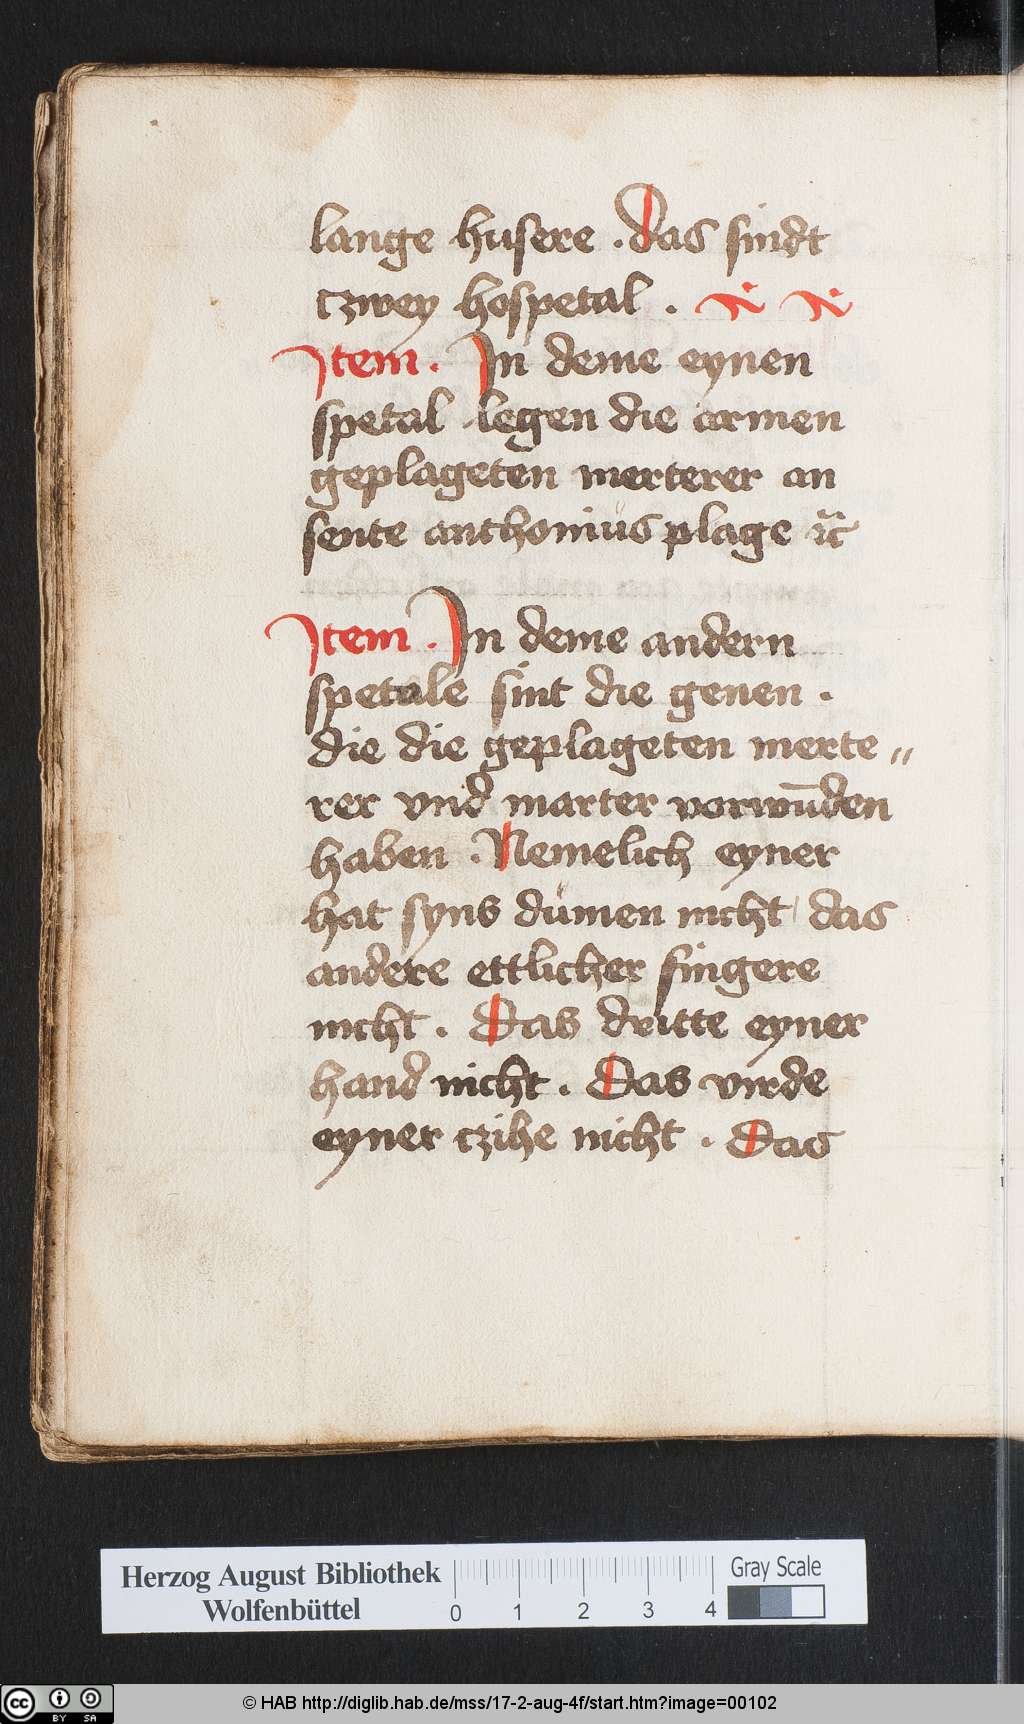 lange husere . das sindt
czwey hospetal .
Jtem . Jn deme eynen
spetal legen die armen
geplageten merterer an
sente anthonius plage ꝛc̃
Jtem . Jn deme andern
spetale sint die genen .
die die geplageten merte〃
rer vnd marter vorwūden
haben . Nemelich eyner
hat syns dümen nicht das
andere ettlicher fingere
nicht . Das dritte eyner
hand nicht . Das virde
eyner czihe nicht . Das
Herzog August Bibliothek
Wolfenbüttel
0 1 2 3 4
Gray Scale
cc BY SA
© HAB http://diglib.hab.de/mss/17-2-aug-4f/start.htm?image=00102